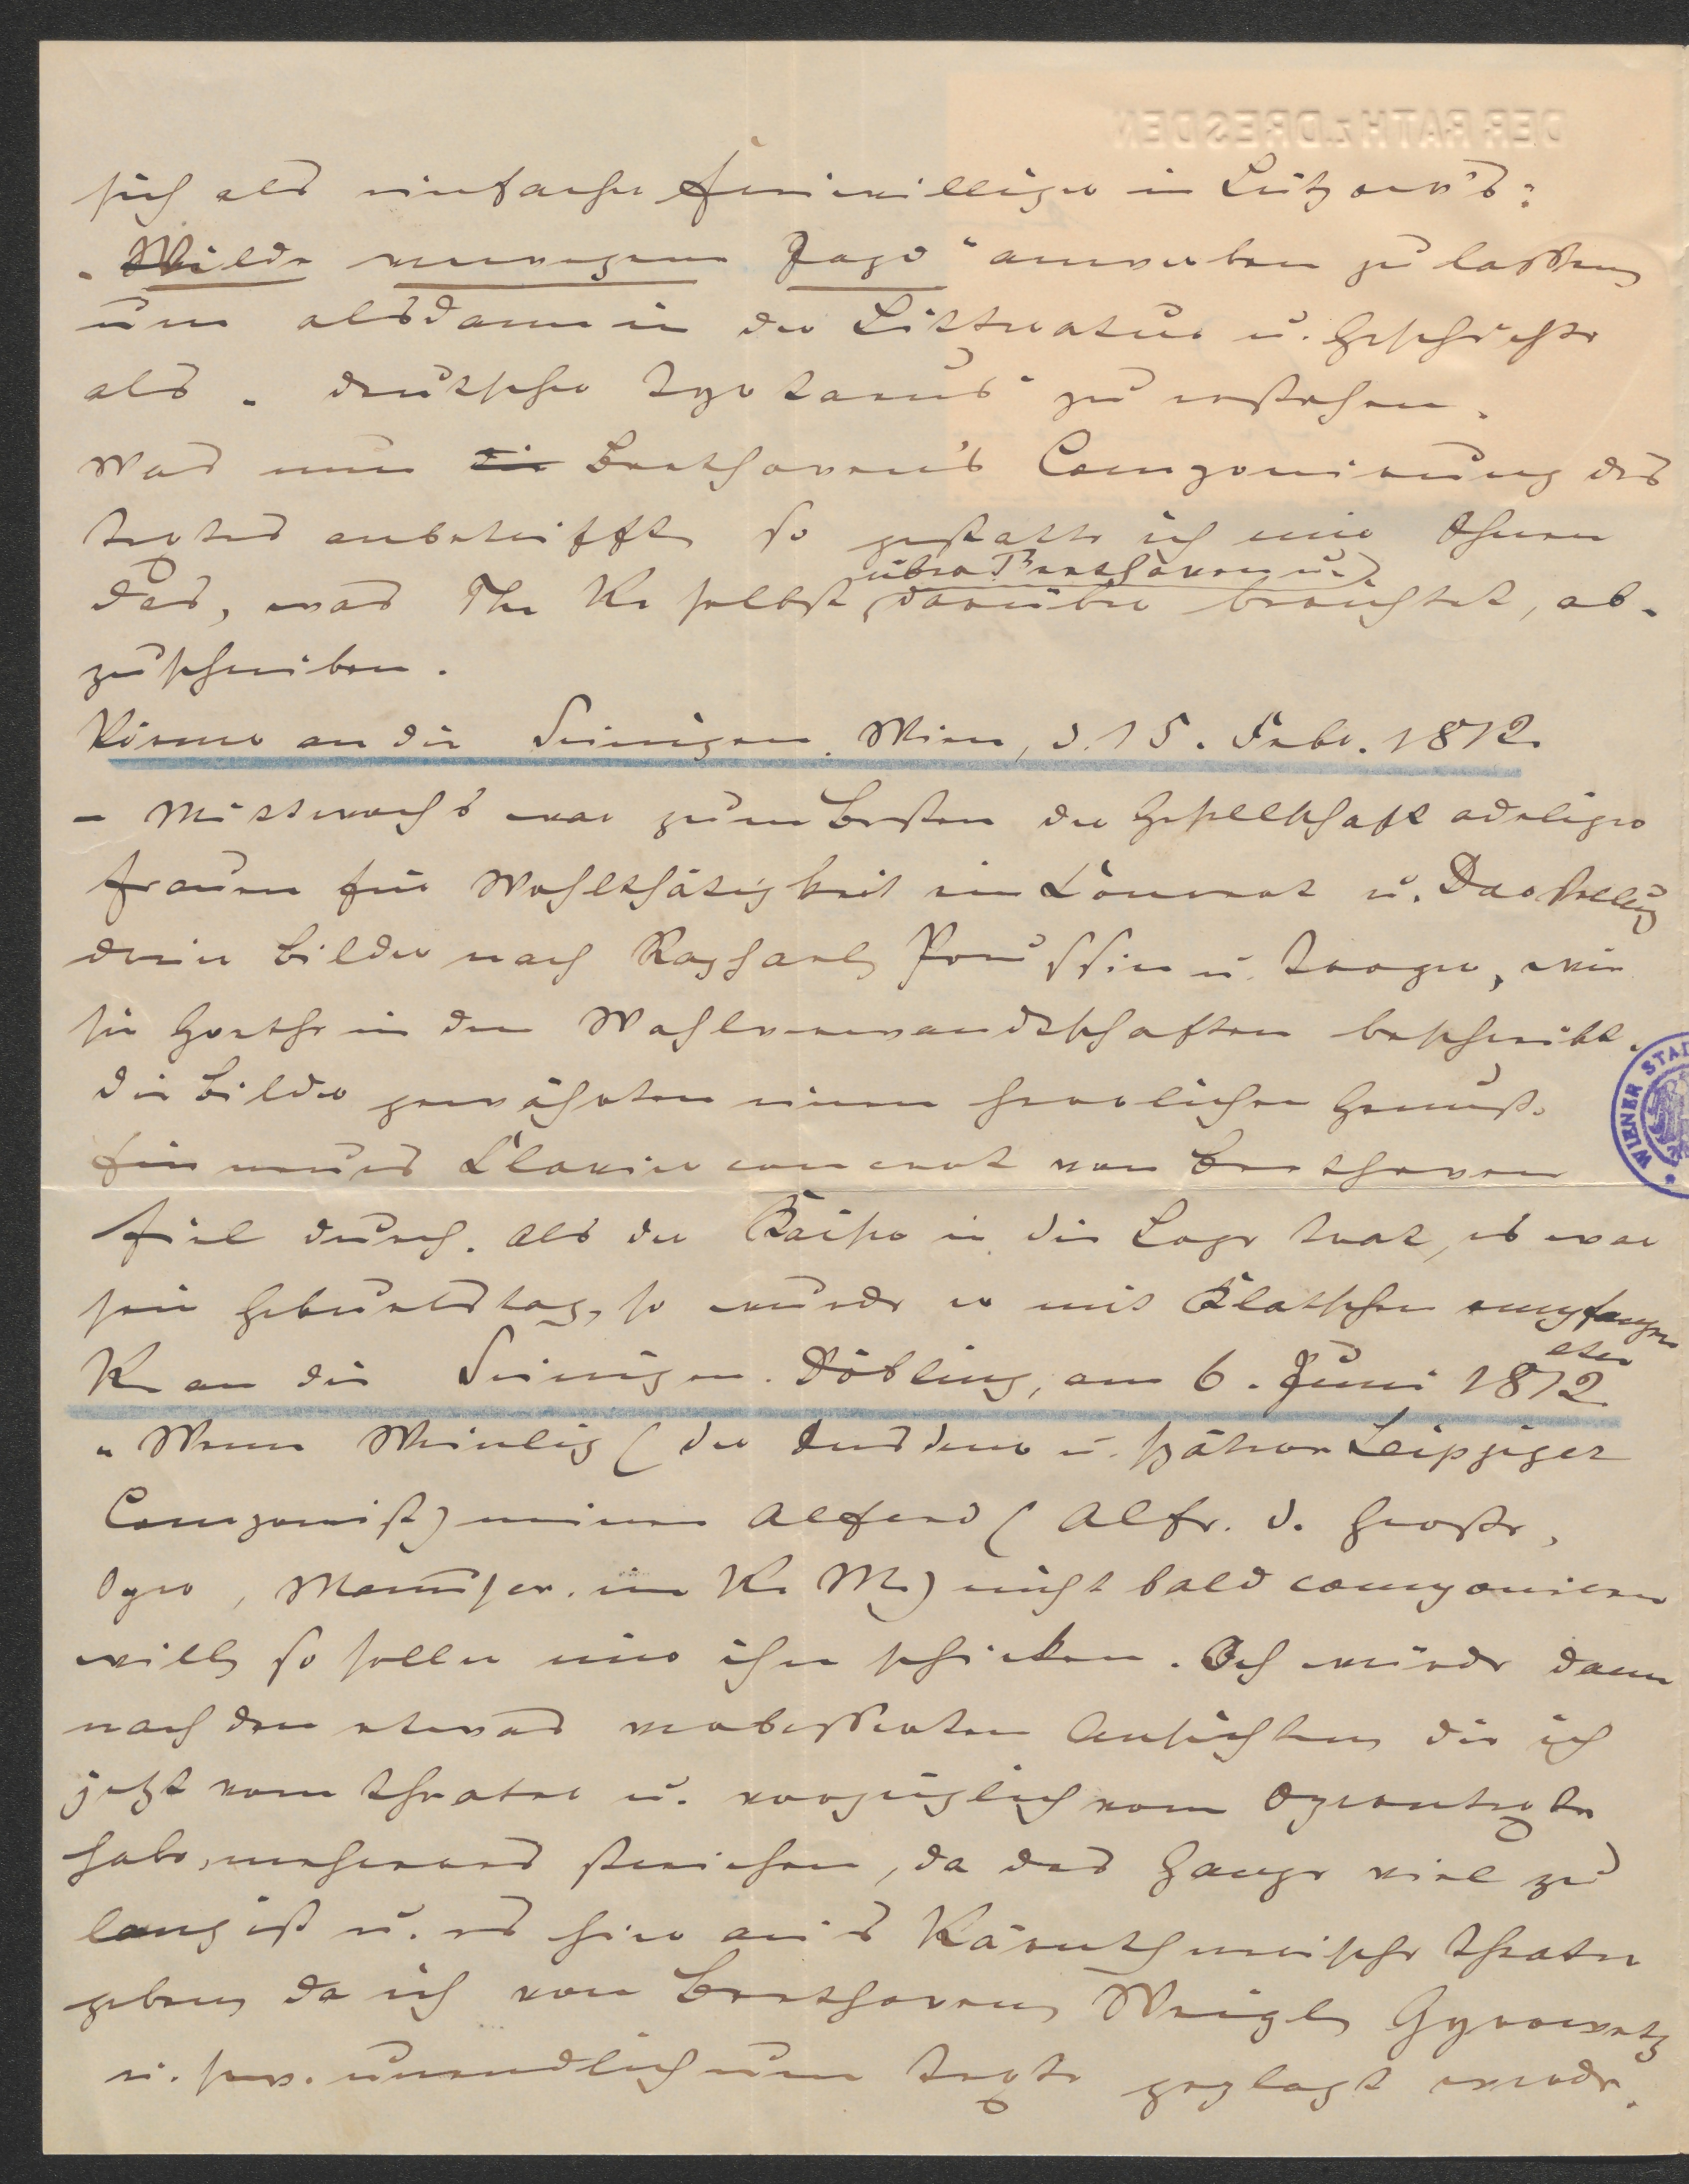 DER RATH z. DRESDEN
sich als einfacher Freiwilliger in Lützow's:
"Wilde verwegene Jagd" anwerben zu lassen,
um alsdann in der Litteratur u. Geschichte
als "deutscher Tyrtaeus" zu erstehen.
Was nun die Beethoven's Componirung des
Textes anbetrifft, so gestatte ich mir Ihnen
über Beethoven u.
das, was Th. K. selbst darüber berichtet, ab-
zuschreiben.
Körner an die Seinigen. Wien, d. 15. Febr. 1812.
- Mittwochs war zum Besten der Gesellschaft adeliger
Frauen für Wohlthätigkeit ein Concert u. Darstellug
dreier Bilder nach Raphael, Poussin u. Troyer, wie
sie Goethe in den Wahlverwandtschaften beschreibt.
Die Bilder gewährten einen herrlichen Genuß.
Ein neues Clavierconcert von Beethoven
fiel durch. Als der Kaiser in die Loge trat, es war
sein Geburtstag, so wurde er mit Klatschen empfangen
etc.
K. an die Seinigen. Döbling, am 6. Juni 1812
"Wenn Weinlig (der Dresdener u. spätere Leipziger
Componist) meinen Alfred (Alfr. d. Große,
Oper, Manuscr. im K. M.) nicht bald componieren
will, so soll er mir ihn schicken. Ich würde dann
nach den etwas verbesserten Ansichten, die ich
jetzt vom Theater u. vorzüglich vom Operntexte
habe, mehreres streichen, da das Ganze viel zu
lang ist u. es hier an's Kärnthnerische Theater
geben, da ich von Beethoven, Weigl, Gyrowetz
u. s. w. unendlich um Texte geplagt werde.
WIENER STAD